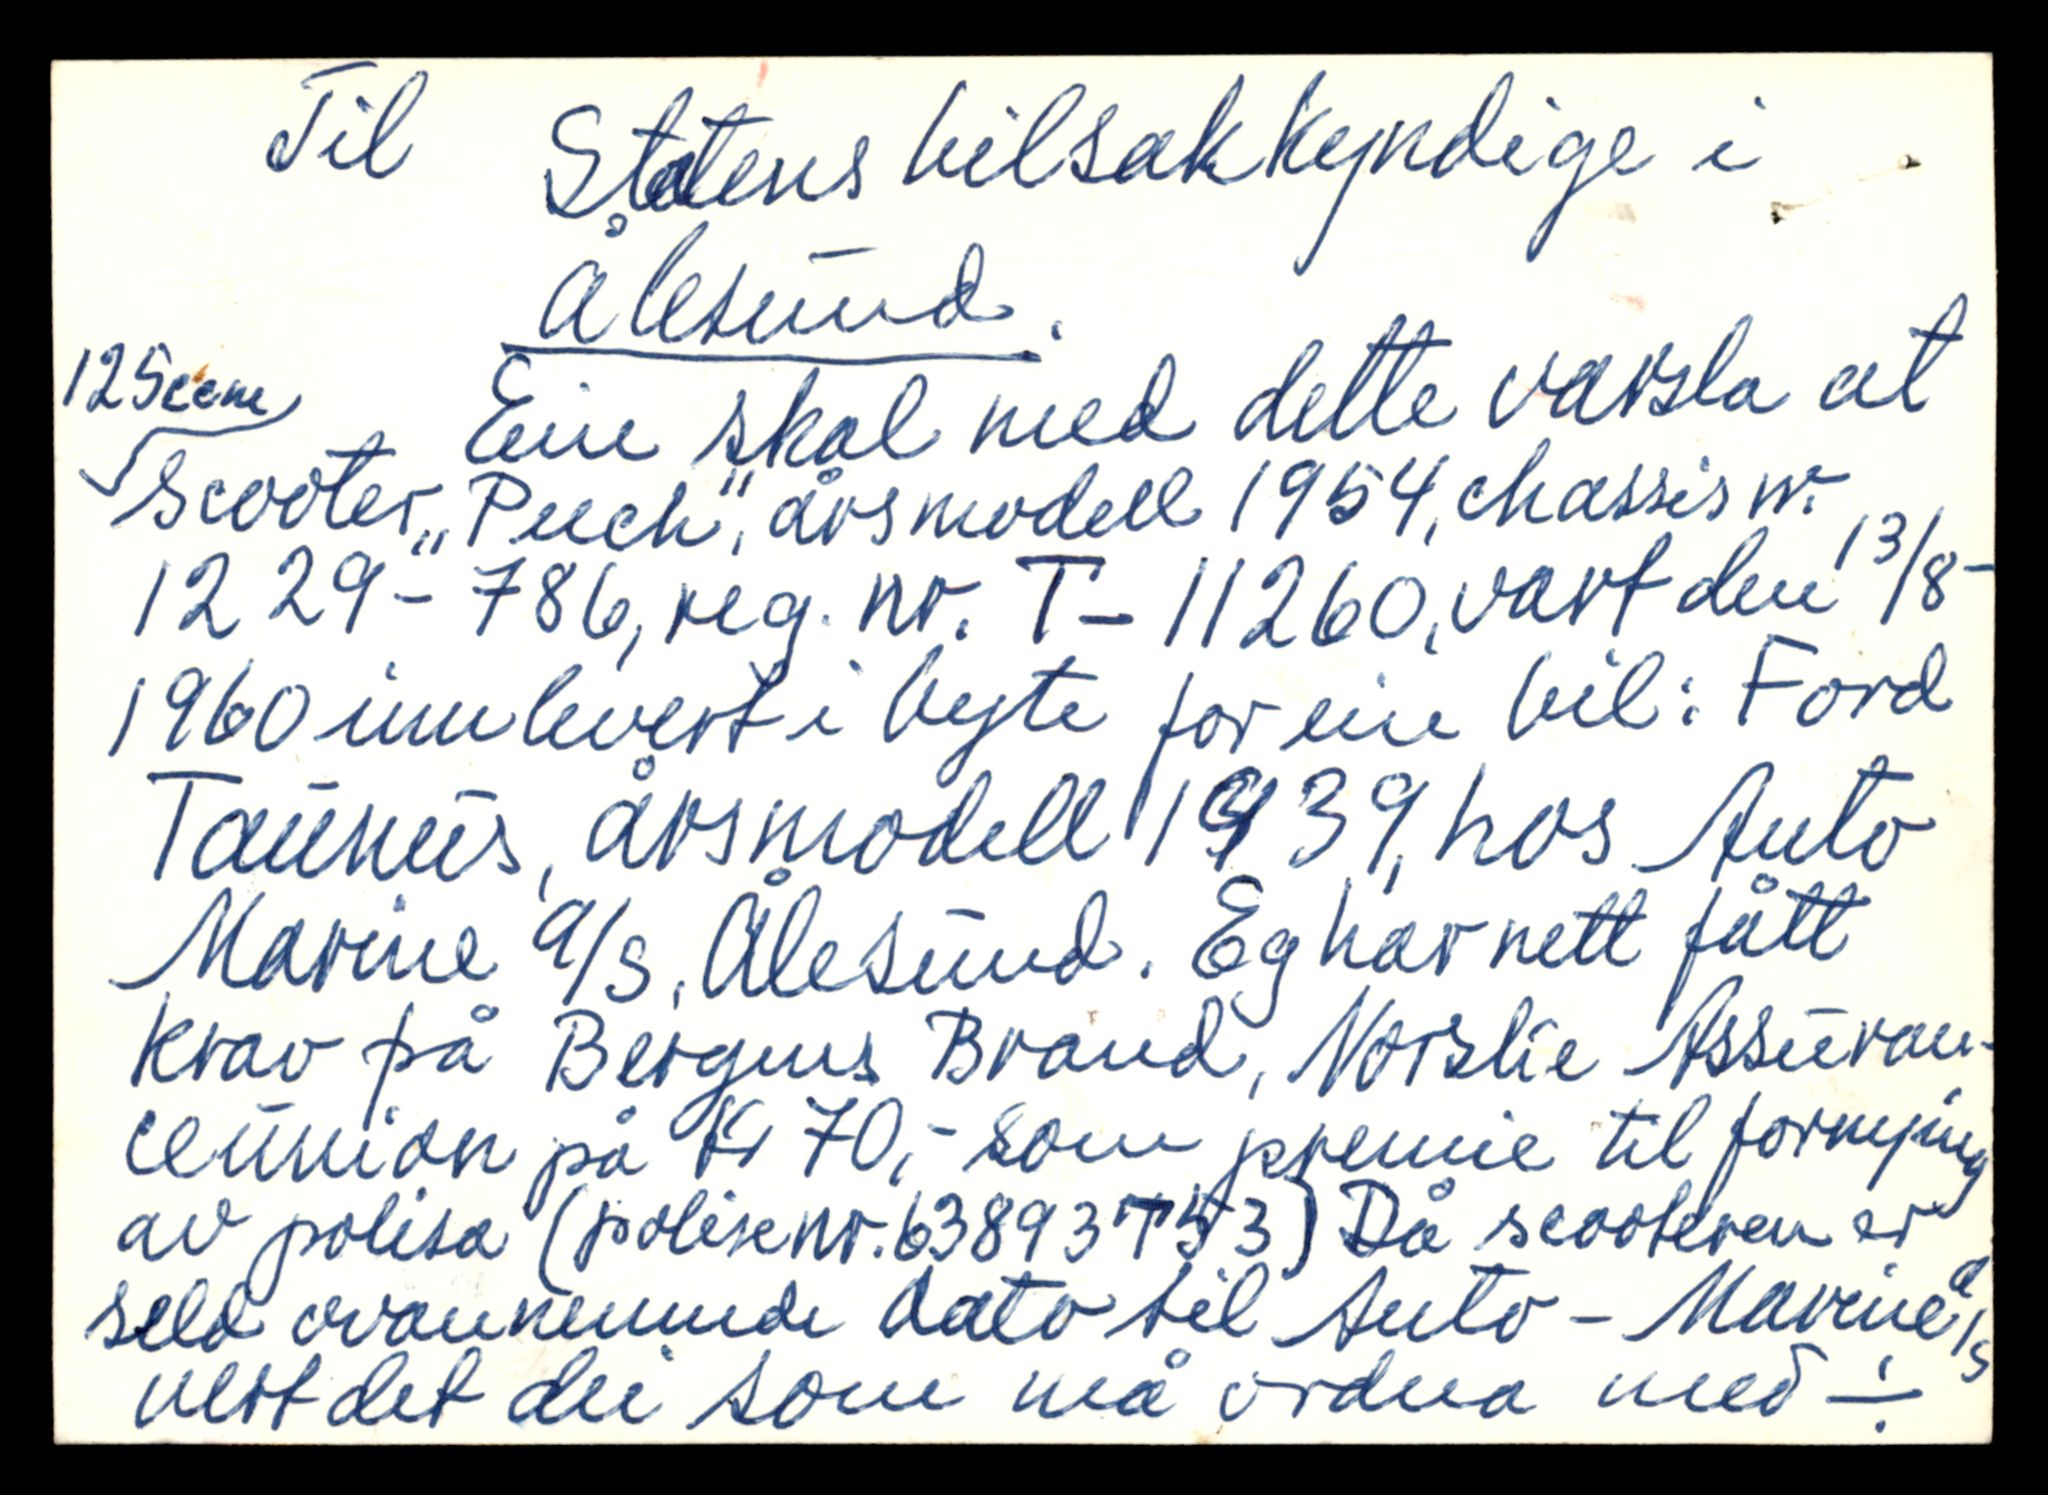 Til Statens bilsakkyndige i
Ålesund.
125 ccm
Ein skal med dette varsla at
scooter „Puch", årsmodell 1954, chassis nr.
1229-786, reg. nr. T-11260, vart den 13/8-
1960 innlevert i byte for ein bil: Ford
Taunus, årsmodell 1939, hos Auto
Marine a/s, Ålesund. Eg har nett fått
krav på Bergens Brand, Norske Assuran-
ceunion på Kr 70,- som premie til fornying
av polisa (polise nr. 63893T53) Då scooteren er
seld ovannemnde dato til Auto-Marine a/s
vert det dei som må ordna med ÷